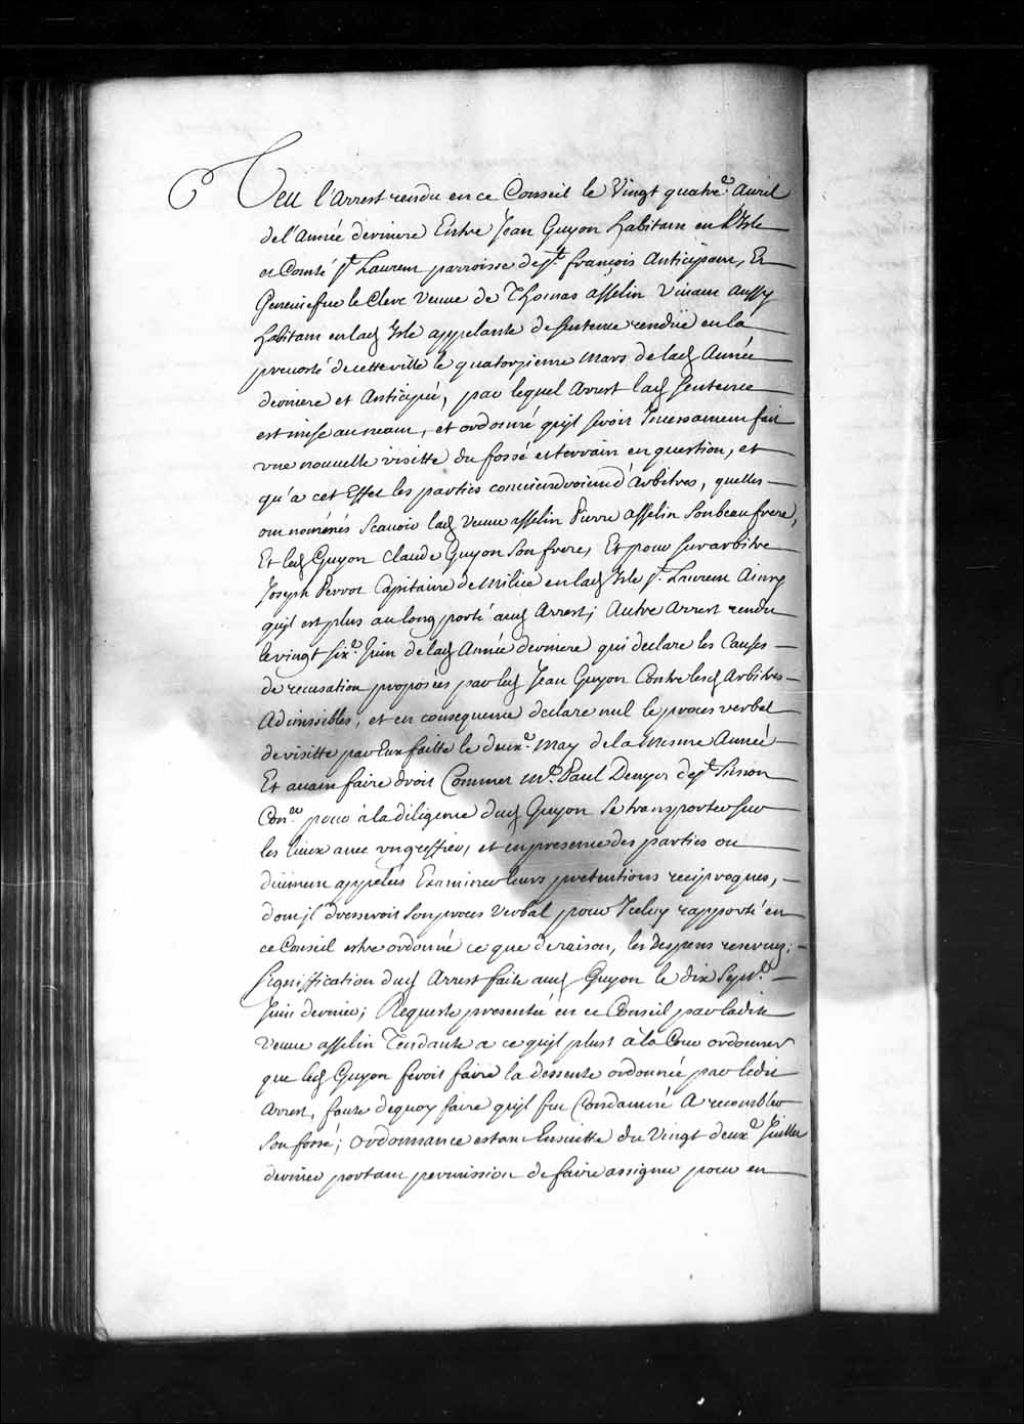 Veu l'Arrest rendu en ce Conseil le Vingt quatre.e Avril
de l'Année derniere Entre Jean Guyon habitant en l'Isle
et Comté St Laurent parroisse de St. françois Anticipant, Et
Geneviefve le Clerc veuve de Thomas asselin vivant aussy
habitant en lad Isle appelante de sentence rendüe en la
prevosté de cette ville le quatorzieme Mars de lad Année
derniere et Anticipée, par lequel Arrest lad sentence
est mise au neant, et ordonné qu'jl seroit Incessament fait
vne nouvelle visitte du fossé et terrain en question, et
qu'a cet Effet les parties conviendroient d'Arbitres, quelles
ont nommés Scauoir lad Veuve asselin Pierre asselin son beau frere,
Et led Guyon Claude Guyon son frere, Et pour surarbitre
Joseph Perrot Capitaine de milice en lad Isle St. Laurent Ainsy
qu'jl est plus au long porté aud Arrest; Autre Arrest rendu
le vingt six.e Juin de lad Année derniere qui declare les Causes
de recusation proposées par led Jean Guyon Contre lesd Arbitres
Admissibles, et en consequence declare nul le proces verbal
de visitte par Eux faitte le deux.e May de la mesme Année
Et auant faire droit Commet Me. Paul Denys de St Simon
Con.er pour à la diligence dud Guyon Se transporter sur
les lieux auec vn greffier, et en presence des parties ou
düement appelées Examiner leurs pretentions reciproques,
dont jl dresseroit son proces verbal pour Iceluy rapporté en
ce Conseil estre ordonné ce que de raison, les despens reservez;
Signiffication dud Arrest faite aud Guyon le dix Sept.e
Juin dernier; Requeste presentée en ce Conseil par ladite
veuve asselin Tendante a ce qu'jl plust à la Cour ordonner
que led Guyon feroit faire la dessente ordonnée par ledit
Arrest, faute dequoy faire qu'jl fut Condamné A recombler
Son fossé; ordonnance estant Ensuitte du Vingt deux.e Juillet
dernier portant permission de faire assigner pour en